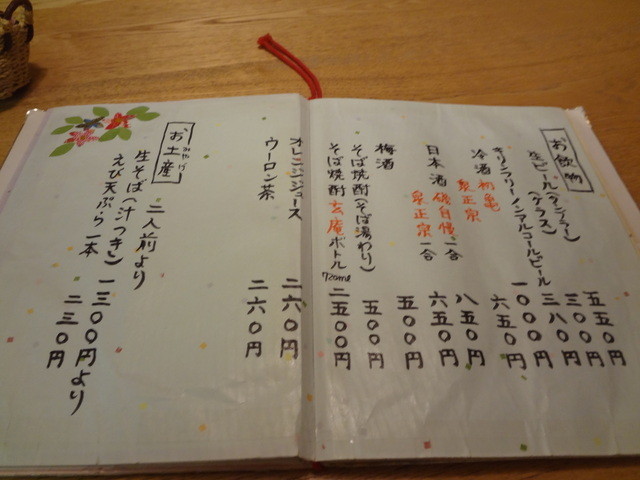 お飲物
生ビール(タンブラー) 五五〇円
(グラス) 三〇〇円
キリンフリーノンアルコールビール 三八〇円
冷酒 初亀 一〇〇〇円
泉正宗 六五〇円
日本酒 磯自慢 一合 八五〇円
泉正宗 一合 六五〇円
梅酒 五〇〇円
そば焼酎(そば湯わり) 五〇〇円
そば焼酎 玄庵ボトル 720ml 二五〇〇円
オレンジジュース 二六〇円
ウーロン茶 二六〇円
お土産
みやげ
二人前より
生そば(汁つき) 一三〇〇円より
えび天ぷら一本 二三〇円